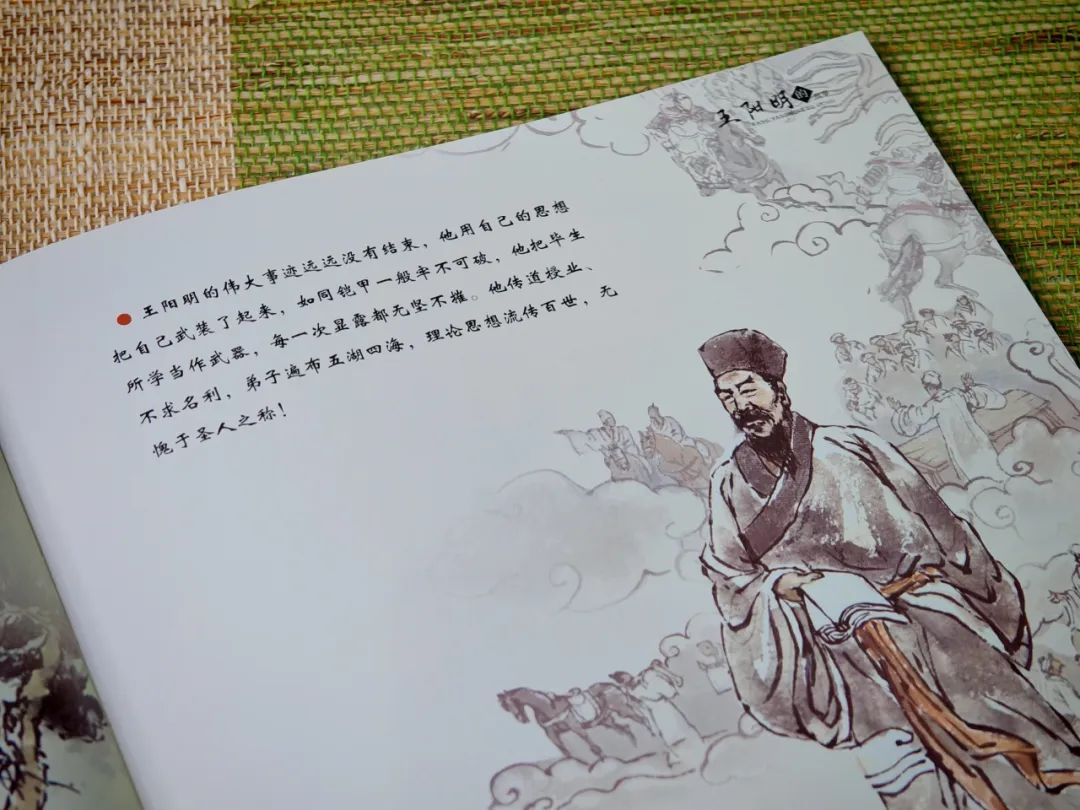 王阳明的
王阳明的伟大事迹远远没有结束，他用自己的思想
把自己武装了起来，如同铠甲一般牢不可破，他把毕生
所学当作武器，每一次显露都无坚不摧。他传道授业、
不求名利，弟子遍布五湖四海，理论思想流传百世，无
愧于圣人之称！